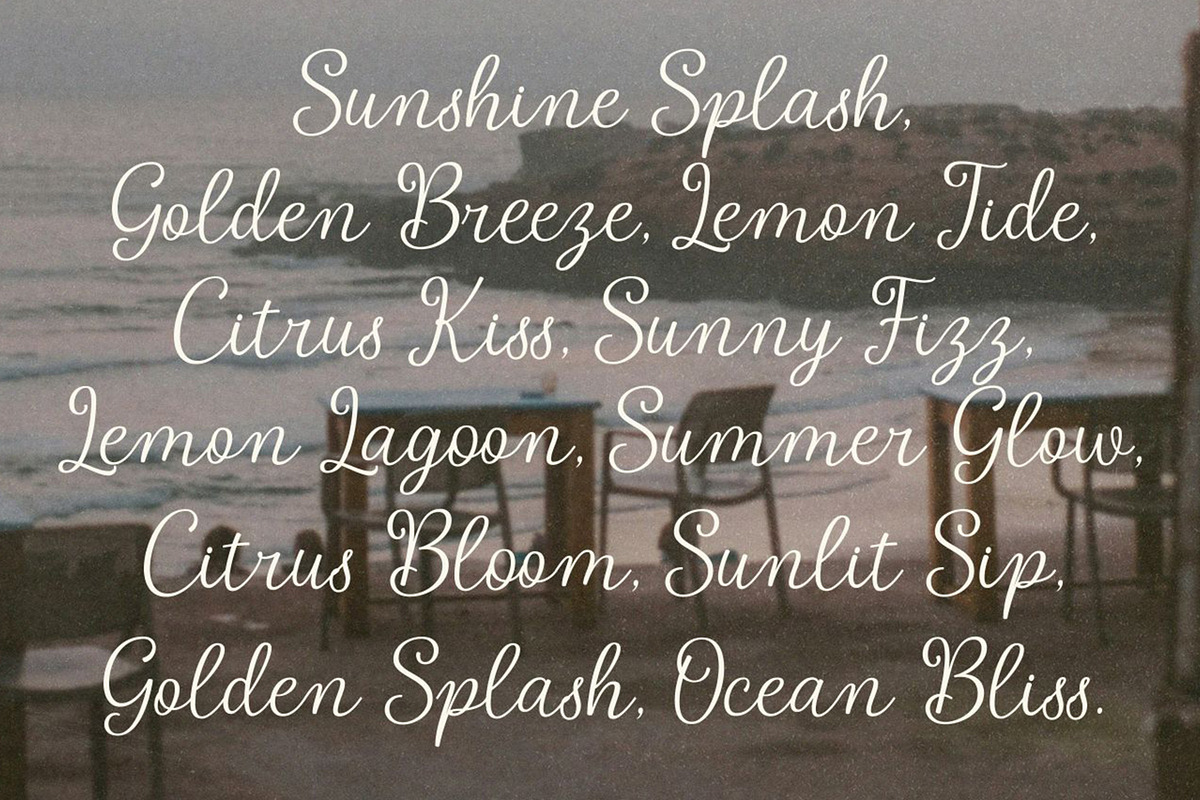 Sunshine Splash,
Golden Breeze, Lemon Tide,
Citrus Kiss, Sunny Fizz,
Lemon Lagoon, Summer Glow,
Citrus Bloom, Sunlit Sip,
Golden Splash, Ocean Bliss.